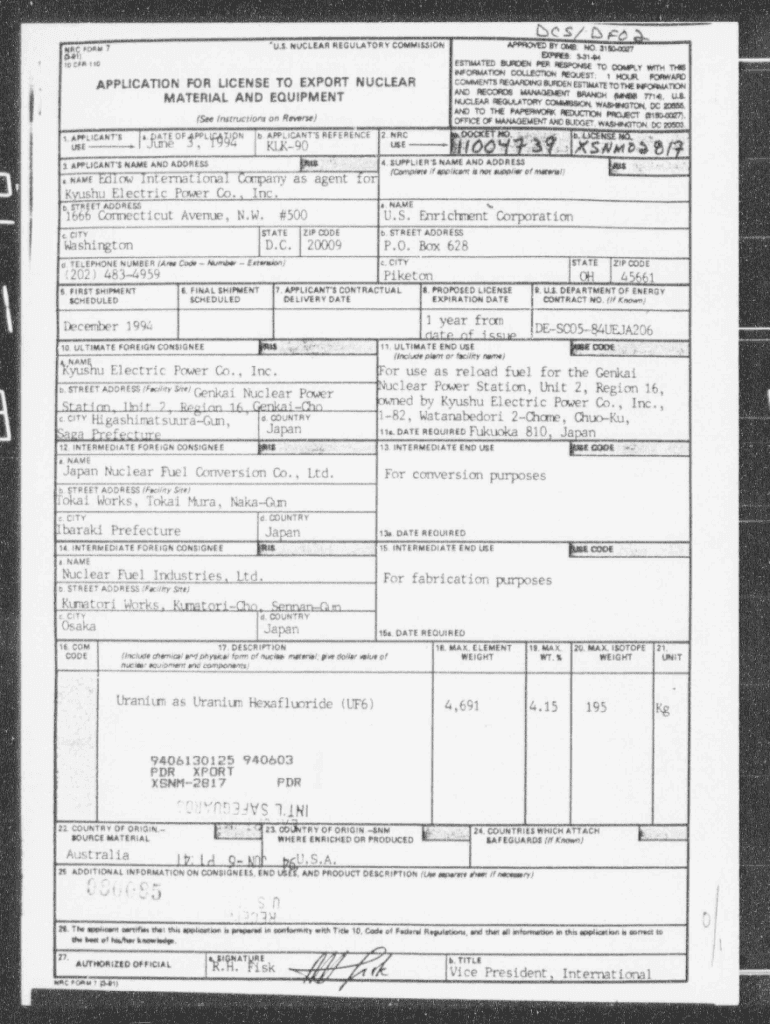 DCS/DF02
NRC FORM 7
(3-81)
10 CFR 110
U.S. NUCLEAR REGULATORY COMMISSION
APPLICATION FOR LICENSE TO EXPORT NUCLEAR
MATERIAL AND EQUIPMENT
(See Instructions on Reverse)
APPROVED BY OMB: NO. 3150-0027
EXPIRES: 5-31-94
ESTIMATED BURDEN PER RESPONSE TO COMPLY WITH THIS
INFORMATION COLLECTION REQUEST: 1 HOUR. FORWARD
COMMENTS REGARDING BURDEN ESTIMATE TO THE INFORMATION
AND RECORDS MANAGEMENT BRANCH (MNBB 7714), U.S.
NUCLEAR REGULATORY COMMISSION, WASHINGTON, DC 20555,
AND TO THE PAPERWORK REDUCTION PROJECT (3150-0027),
OFFICE OF MANAGEMENT AND BUDGET, WASHINGTON, DC 20503.
1. APPLICANT'S USE
a. DATE OF APPLICATION
June 3, 1994
b. APPLICANT'S REFERENCE
KLK-90
2. NRC USE
a. DOCKET NO.
11004739
b. LICENSE NO.
XSNM02817
3. APPLICANT'S NAME AND ADDRESS
RIS
a. NAME Edlow International Company as agent for
Kyushu Electric Power Co., Inc.
b. STREET ADDRESS
1666 Connecticut Avenue, N.W. #500
c. CITY
Washington
STATE
D.C.
ZIP CODE
20009
d. TELEPHONE NUMBER (Area Code - Number - Extension)
(202) 483-4959
4. SUPPLIER'S NAME AND ADDRESS
(Complete if applicant is not supplier of material)
RIS
a. NAME
U.S. Enrichment Corporation
b. STREET ADDRESS
P.O. Box 628
c. CITY
Piketon
STATE
OH
ZIP CODE
45661
5. FIRST SHIPMENT SCHEDULED
December 1994
6. FINAL SHIPMENT SCHEDULED
7. APPLICANT'S CONTRACTUAL DELIVERY DATE
8. PROPOSED LICENSE EXPIRATION DATE
1 year from
date of issue
9. U.S. DEPARTMENT OF ENERGY CONTRACT NO. (If Known)
DE-SC05-84UEJA206
10. ULTIMATE FOREIGN CONSIGNEE
RIS
a. NAME
Kyushu Electric Power Co., Inc.
b. STREET ADDRESS (Facility Site) Genkai Nuclear Power
Station, Unit 2, Region 16, Genkai-Cho
c. CITY Higashimatsuura-Gun,
Saga Prefecture
d. COUNTRY
Japan
11. ULTIMATE END USE
(Include plant or facility name)
USE CODE
For use as reload fuel for the Genkai
Nuclear Power Station, Unit 2, Region 16,
owned by Kyushu Electric Power Co., Inc.,
1-82, Watanabedori 2-Chome, Chuo-Ku,
11a. DATE REQUIRED Fukuoka 810, Japan
12. INTERMEDIATE FOREIGN CONSIGNEE
RIS
a. NAME
Japan Nuclear Fuel Conversion Co., Ltd.
b. STREET ADDRESS (Facility Site)
Tokai Works, Tokai Mura, Naka-Gun
c. CITY
Ibaraki Prefecture
d. COUNTRY
Japan
13. INTERMEDIATE END USE
USE CODE
For conversion purposes
13a. DATE REQUIRED
14. INTERMEDIATE FOREIGN CONSIGNEE
RIS
a. NAME
Nuclear Fuel Industries, Ltd.
b. STREET ADDRESS (Facility Site)
Kumatori Works, Kumatori-Cho, Sennan-Gun
c. CITY
Osaka
d. COUNTRY
Japan
15. INTERMEDIATE END USE
USE CODE
For fabrication purposes
15a. DATE REQUIRED
16. COM CODE
17. DESCRIPTION
(Include chemical and physical form of nuclear material; give dollar value of
nuclear equipment and components)
18. MAX. ELEMENT WEIGHT
19. MAX. WT. %
20. MAX. ISOTOPE WEIGHT
21. UNIT
Uranium as Uranium Hexafluoride (UF6)
4,691
4.15
195
Kg
9406130125 940603
PDR XPORT
XSNM-2817 PDR
INT'L SAFEGUARDS
22. COUNTRY OF ORIGIN - SOURCE MATERIAL
Australia
23. COUNTRY OF ORIGIN - SNM WHERE ENRICHED OR PRODUCED
U.S.A.
24. COUNTRIES WHICH ATTACH SAFEGUARDS (If Known)
25. ADDITIONAL INFORMATION ON CONSIGNEES, END USES, AND PRODUCT DESCRIPTION (Use separate sheet if necessary)
26. The applicant certifies that this application is prepared in conformity with Title 10, Code of Federal Regulations, and that all information in this application is correct to
the best of his/her knowledge.
27. AUTHORIZED OFFICIAL
a. SIGNATURE
R.H. Fisk
b. TITLE
Vice President, International
NRC FORM 7 (3-81)